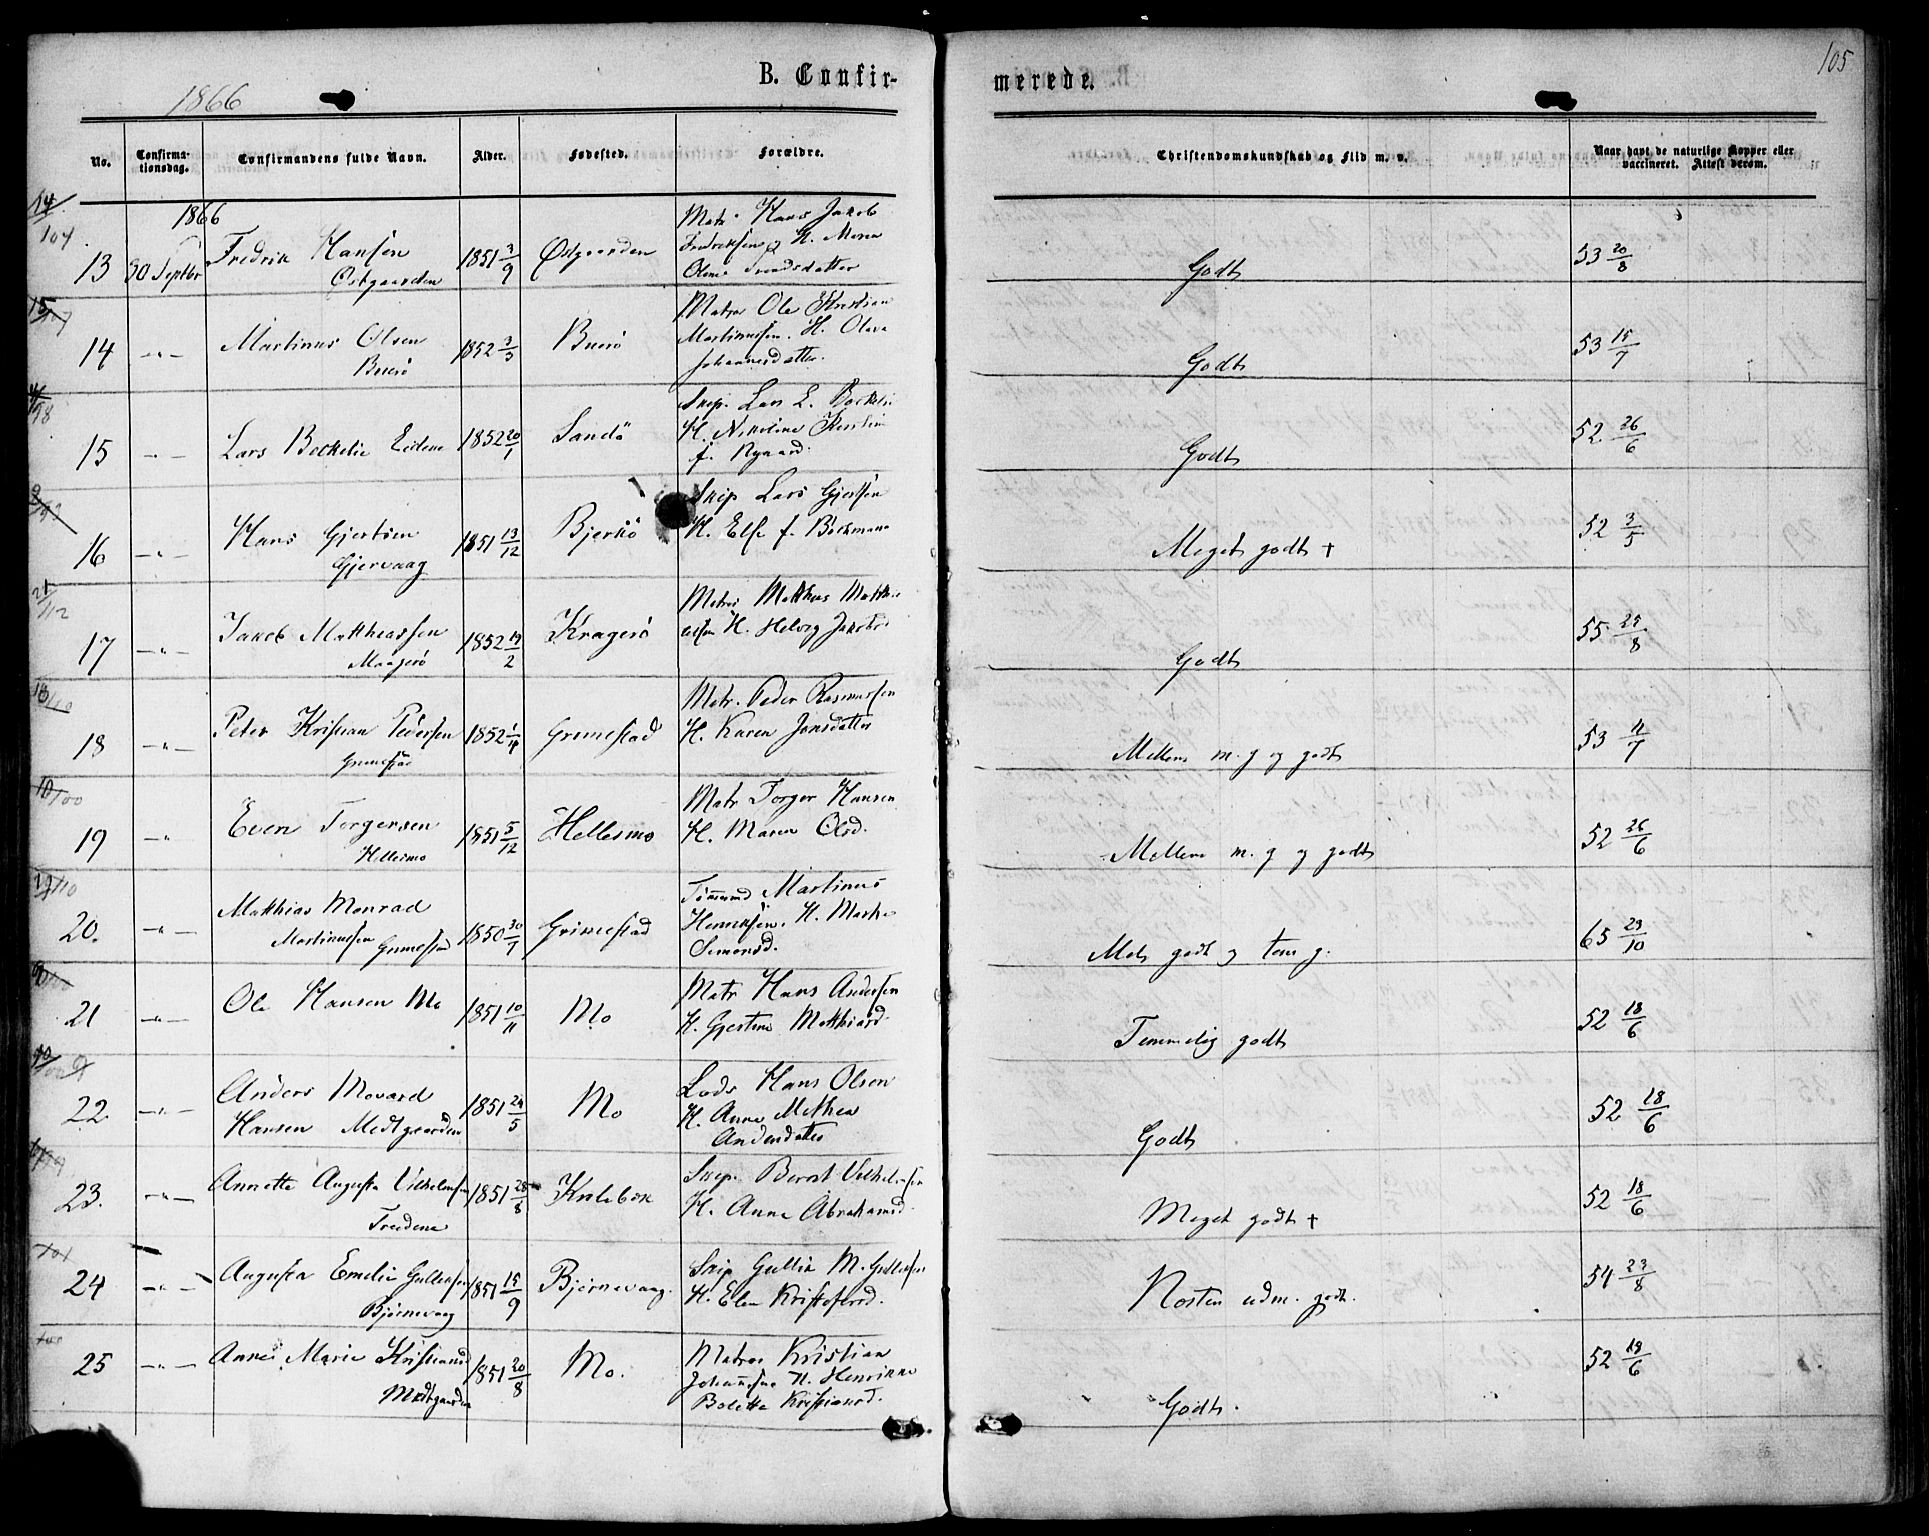 105
B. Confir-
merede.
1866
No.
Confirma-
tionsdag.
Confirmandens fulde Navn.
Alder.
Fødested.
Forældre.
Christendomskundskab og Flid m. v.
Naar havt de naturlige Kopper eller
vaccineret. Attest derom.
1866
13 30 Septbr Fredrik Hansen
Østgaarden
1851 3/9 Østgaarden
Matr. Hans Jakob
Fredriksen og H. Maren
Olene
Godt
53 20/8
14 -"- Martinus Olsen
Buerø
1852 3/5 Buerø
Matros Ole Kristian
Martinussen. H. Olava
Johannesdatter.
Godt
53 15/7
15 -"- Lars Beckelie Eidene 1852 20/1 Sandö
Skip. Lars L.
H. Nikoline
f. Nygaard.
Godt
52 26/6
16 -"- Hans Gjertsen
Gjervaag
1851 13/12 Bjerkö
Skip Lars Gjertsen
H. Else f. Bockmann
Meget godt +
52 3/5
17 -"- Jakob Matthiassen
Maagerø
1852 19/2 Kragerø
Matros Matthias Matthi-
assen H. Helvig
Godt
55 25/8
18 -"- Peter Kristian Pedersen
Grimestad
1852 1/4 Grimestad
Matr. Peder Rasmussen
H. Karen Jonsdatter
Mellem m. g og godt
53 11/7
19 -"- Even Torgersen
Hellesmo
1851 5/12 Hellesmo
Matr Torger Hansen
H. Maren Olsd.
Mellem m. g og godt
52 26/6
20. -"- Matthias Monrad
Martinussen Grimestad
1850 30/7 Grimestad
Tømmermd Martinus
Henriksen. H. Marthe
Simonsd.
Mel. godt og tem g.
65 29/10
21 -"- Ole Hansen Mo 1851 10/11 Mo
Matr Hans Andersen
H. Gjertine Matthiasd.
Temmelig godt
52 18/6
22. -"- Anders Movard
Hansen Medtgaarden
1851 24/5 Mo
Lods Hans Olsen
H. Anne Mathea
Andersdatter
Godt
52 18/6
23. -"- Annette Augusta Vilhelmsen
Tredene
1851 28/8
Skip. Bernt Vilhelmsen
H. Anne Abrahamsd.
Meget godt +
52 18/6
24 -"- Augusta Emelie Gulliksen
Bjørnevaag
1851 15/9 Bjørnevaag.
Skip Gullik M. Gulliksen
H. Elen Kristofersd.
Næsten udm. godt.
54 23/8
25 -"- Anne Marie Kristiansd
Medtgaarden
1851 20/8 Mo.
Matros Kristian
Johannesen H. Henrikke
Bolette Kristiansd.
Godt.
52 19/6